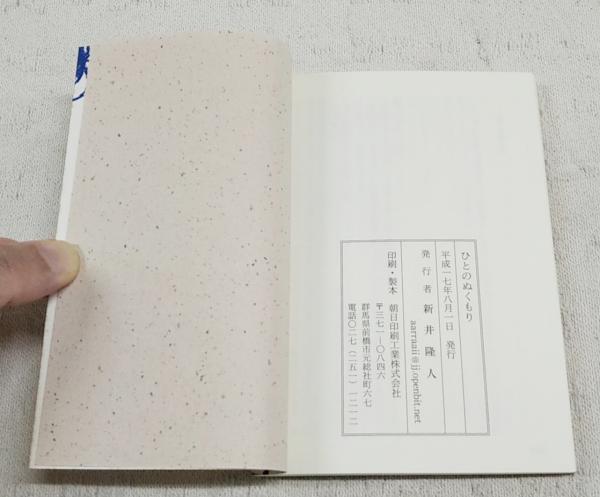 ひとのぬくもり
平成一七年八月一日 発行
発行者 新井隆人
aarraaii@jj.openbit.net
印刷・製本 朝日印刷工業株式会社
〒三七一―〇八四六
群馬県前橋市元総社町六七
電話〇二七(二五一)一二一二